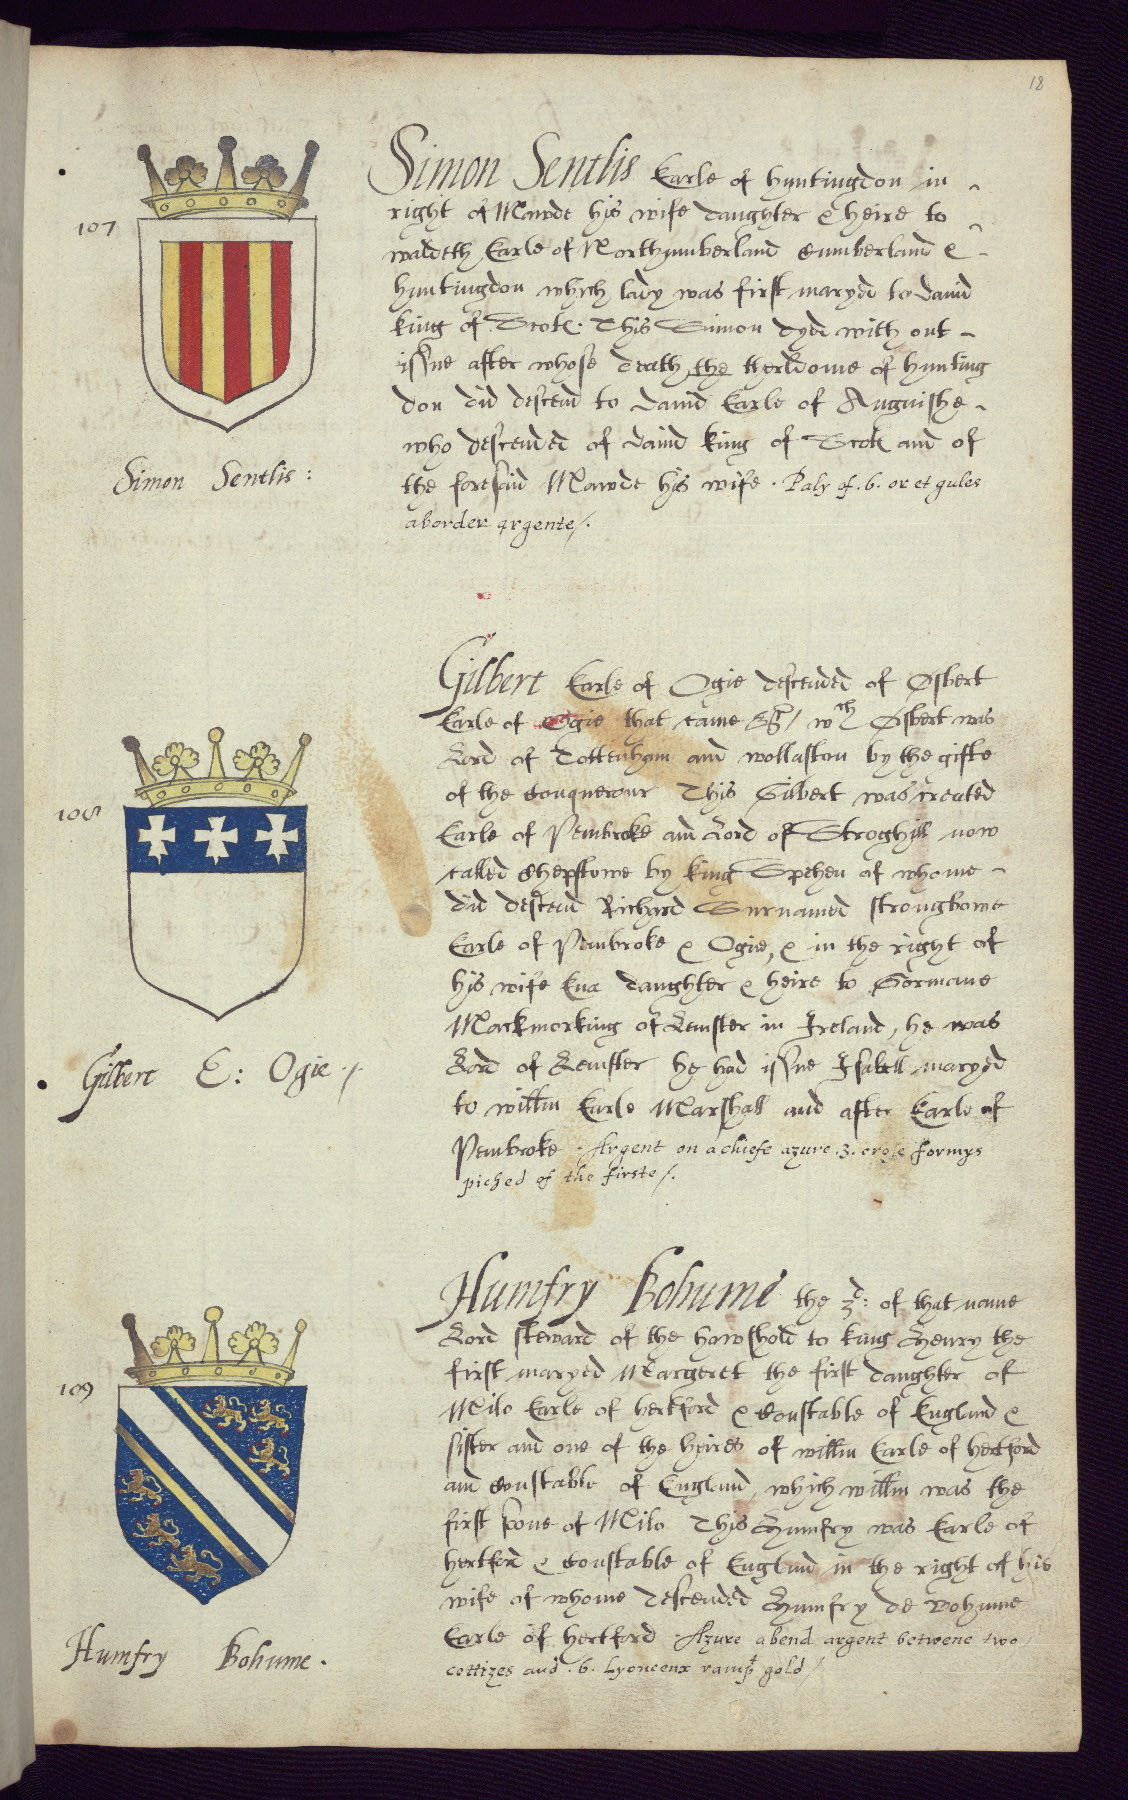 18
107
Simon Sentlis Earle of Huntingdon in
right of Mawde his wife daughter & heire to
waldeth Earle of Northumberland Cumberland &
huntingdon which lady was first maryed to david
king of Scotℓ. This Simon dyed with out
issue after whose death, the therldome of hunting
don did descend to david Earle of Anguishe
who descended of david king of Scotℓ and of
the foresaid Mawde his wife . Paly of .6. or et gules
a border argente/.
Simon Sentlis :
Gilbert Earle of Ogie descended of Osbert
Earle of Ogie that came wth Osbert was
Lord of Tottenham and wollaston by the gifte
of the Conquerour This Gilbert was created
Earle of Pembroke and Lord of Stroghill now
called Chepstowe by king Stephen of whome
did descend Richard Surnamed strongbowe
Earle of Pembroke & Ogie, & in the right of
his wife Eva daughter & heire to Gormane
Mackmorking of Leinster in Ireland, he was
Lord of Leinster he had issue Isabell maryed
to willm Earle Marshall and after Earle of
Pembroke . Argent on a chiefe azure .3. crose formys
piched of the firste/.
108
Gilbert E: Ogie ./.
Humfry Bohume the 3d: of that name
Lord steward of the howshold to king Henry the
first maryed Margeret the first daughter of
Milo Earle of hertford & Constable of England &
sister and one of the heires of willm Earle of hertford
and Constable of England which willm was the
first sone of Milo This Humfry was Earle of
hertford & Constable of England in the right of his
wife of whome descended Humfry de Bohume
Earle of hertford . Azure a bend argent betwene two
cottizes and .6. Lyoncenx rampt gold/
109
Humfry Bohume .